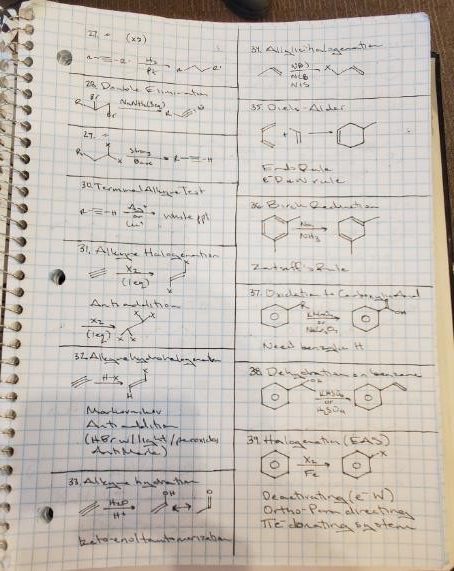 27. " (x2)
R R' H2 Pt R R'
28. Double Elimination
R Br Br NaNH2 (3eq) R
29. "
R X X Strong Base R H
30. Terminal Alkyne Test
R H Ag+ or Cu+ white ppt
31. Alkyne Halogenation
X2 (1eq) X X
Anti addition
X2 (1eq) X X X X
32. Alkyne hydrohalogenation
H-X X H
Markovnikov
Anti addition
(HBr w/ light/peroxides
AntiMark)
33. Alkyne hydration
H2O H+ OH O
keto-enol tautomerization
34. Allylic halogenation
NBS NCB NIS X
35. Diels-Alder
+
Endo Rule
Rule
36. Birch Reduction
Na NH3
Zaitseff's Rule
37. Oxidation to Carboxylic Acid
R OH
Need benzylic H
38. Dehydration on benzene
OH or H2SO4
39. Halogenation (EAS)
X2 Fe X
Deactivating (e- W)
Ortho-Para directing
donating system